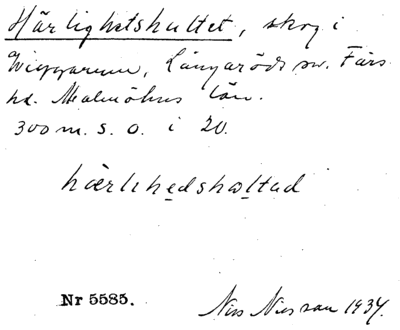 Härlighetshultet, skog i
Wiggarum, Långaröds sn. Färs
hd. Malmöhus län.
300 m. s. o. i 20.
hærlehedshwltad
Nr 5585.
Nils Nilsson 1934.